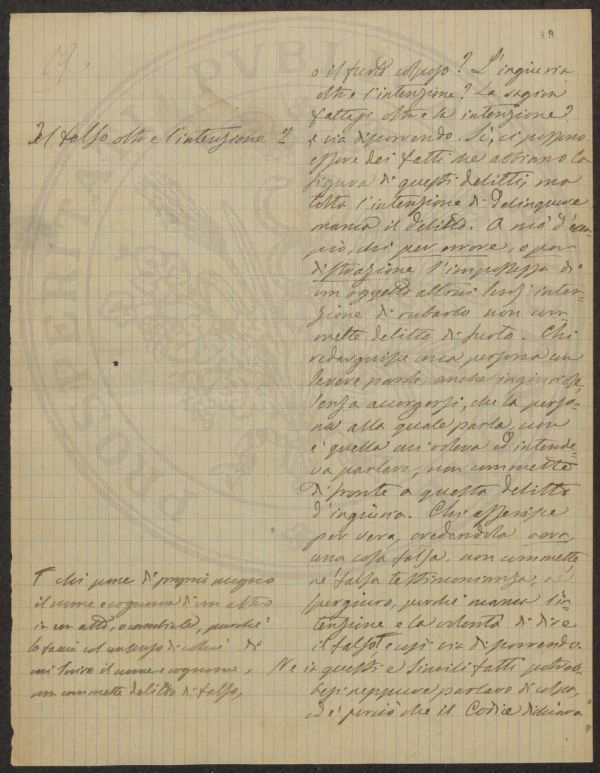 19
o il furto colposo? L'ingiuria
oltre l'intenzione? La
oltre la intenzione?
Il falso oltre l'intenzione?
e via discorrendo. Sì, ci possono
essere dei fatti che abbiano la
figura di questi delitti, ma
tolta l'intenzione di delinquere
manca il delitto. A mo' d'esem-
pio, chi per errore, o per
distrazione s'impossessa di
un oggetto altrui senz'inten-
zione di rubarlo non com-
mette delitto di furto. Chi
una persona con
parole, anche ingiuriose,
senza accorgersi, che la perso-
na alla quale parla, non
è quella cui voleva ed intende-
va parlare, non commette
di fronte a questa delitto
d'ingiuria. Chi asserisse
per vera, credendola vera,
una cosa falsa, non commette,
nè falsa testimonianza, nè
spergiuro, perchè manca l'in-
tenzione e la volontà di dire
il falso e così via discorrendo.
chi pone di proprio pugno
il nome e cognome di un altro
in un atto, o cambiale, perchè
lo faccia col consenso di colui di
cui scrive il nome e cognome,
non commette delitto di falso,
Ne in questi e simili fatti potreb-
besi neppure parlare di colpa,
ed è perciò che il Codice dichiara
PROSPERITAS PUBLI